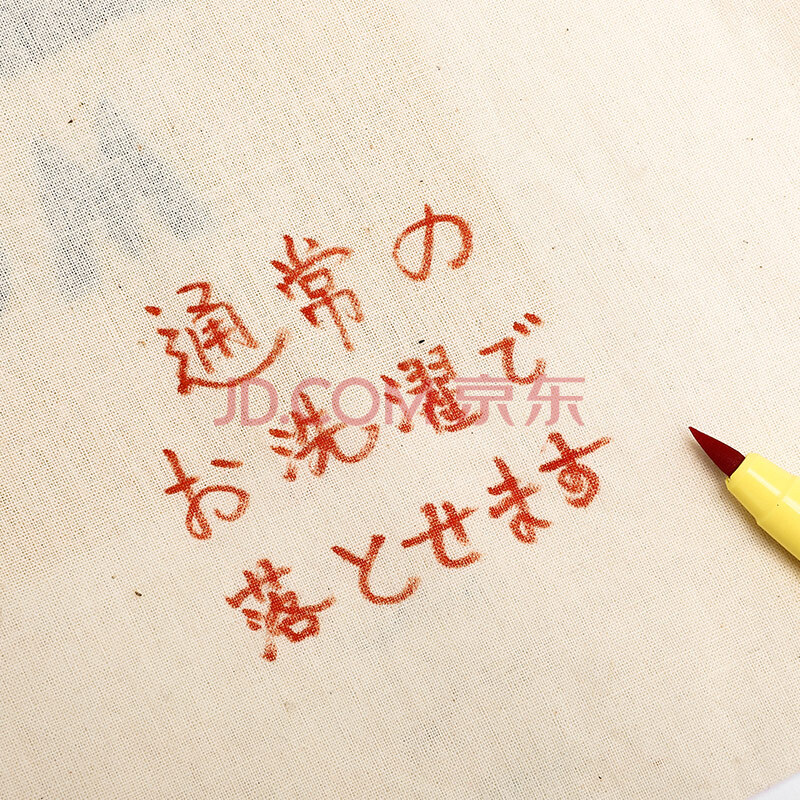 通常の
お洗濯で
落とせます
JD.COM京东